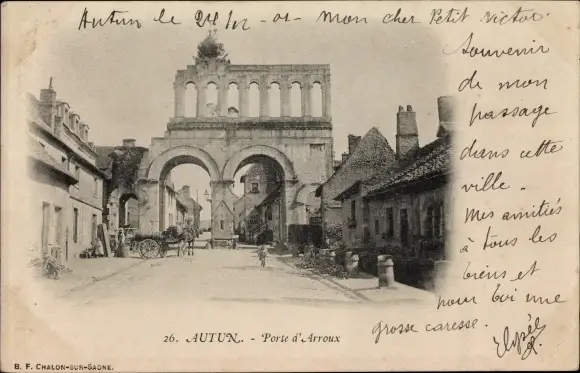 Autun le 24 br - 01 - mon cher Petit Victor.
Souvenir
de mon
passage
dans cette
ville -
Mes amitiés
à tous les
tiens et
pour toi une
grosse caresse.
26. AUTUN. - Porte d'Arroux
B. F. CHALON-SUR-SAONE.